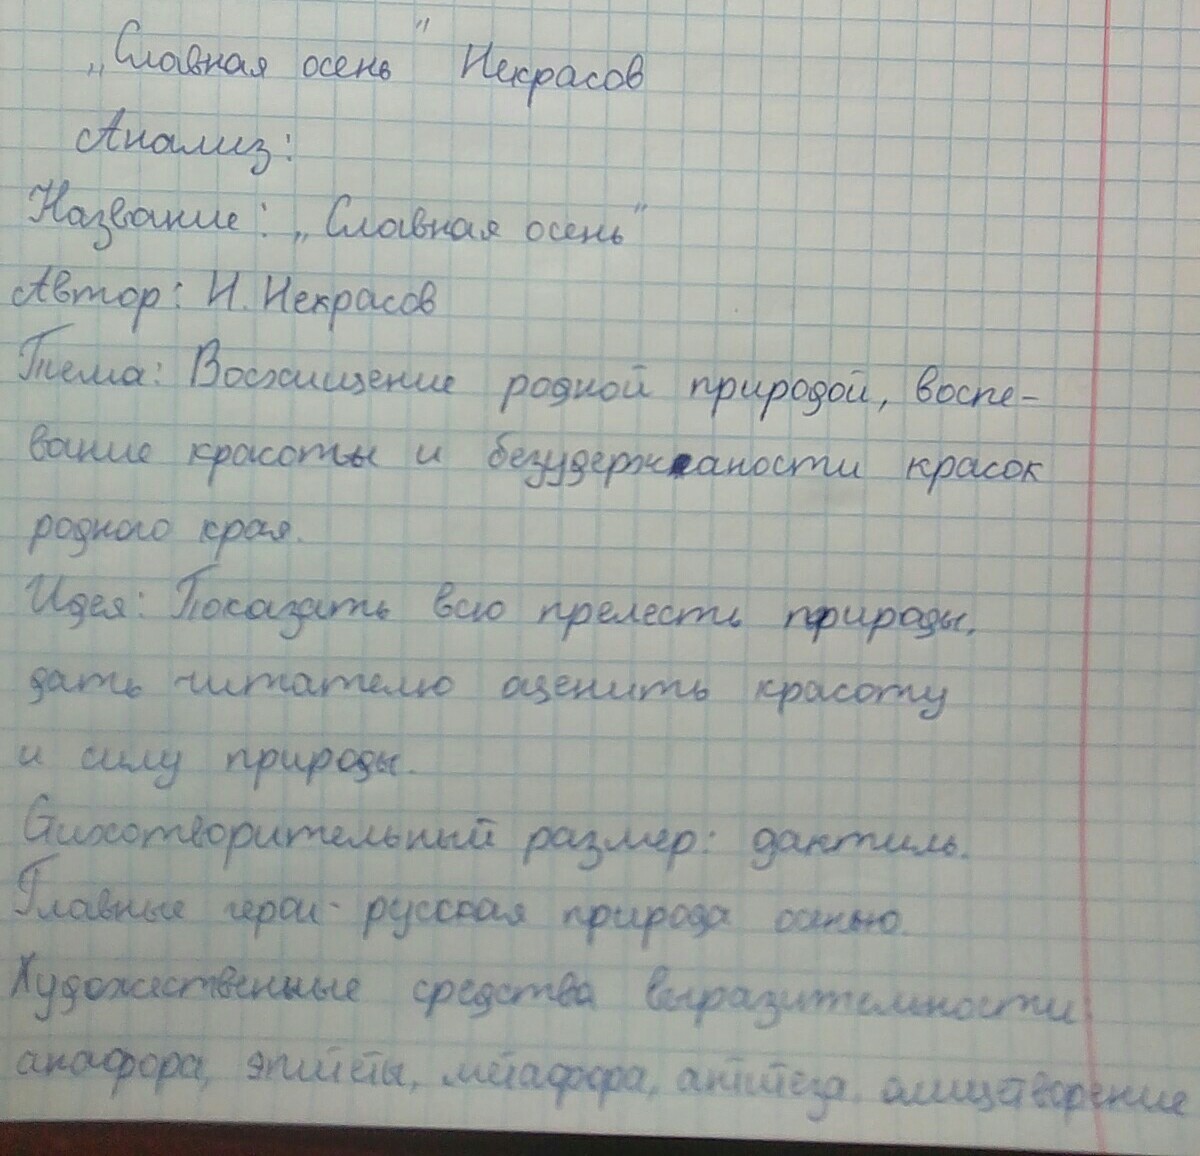 „Славная осень" Некрасов
Анализ:
Название: „Славная осень"
Автор: Н. Некрасов
Тема: Восхищение родной природой, воспе-
вание красоты и безудержаности красок
родного края.
Идея: Показать всю прелесть природы,
дать читателю оценить красоту
и силу природы.
Стихотворительный размер: дактиль.
Главные герои - русская природа осенью.
Художественные средства выразительности
анафора, эпитеты, метафора, антитеза, олицетворение